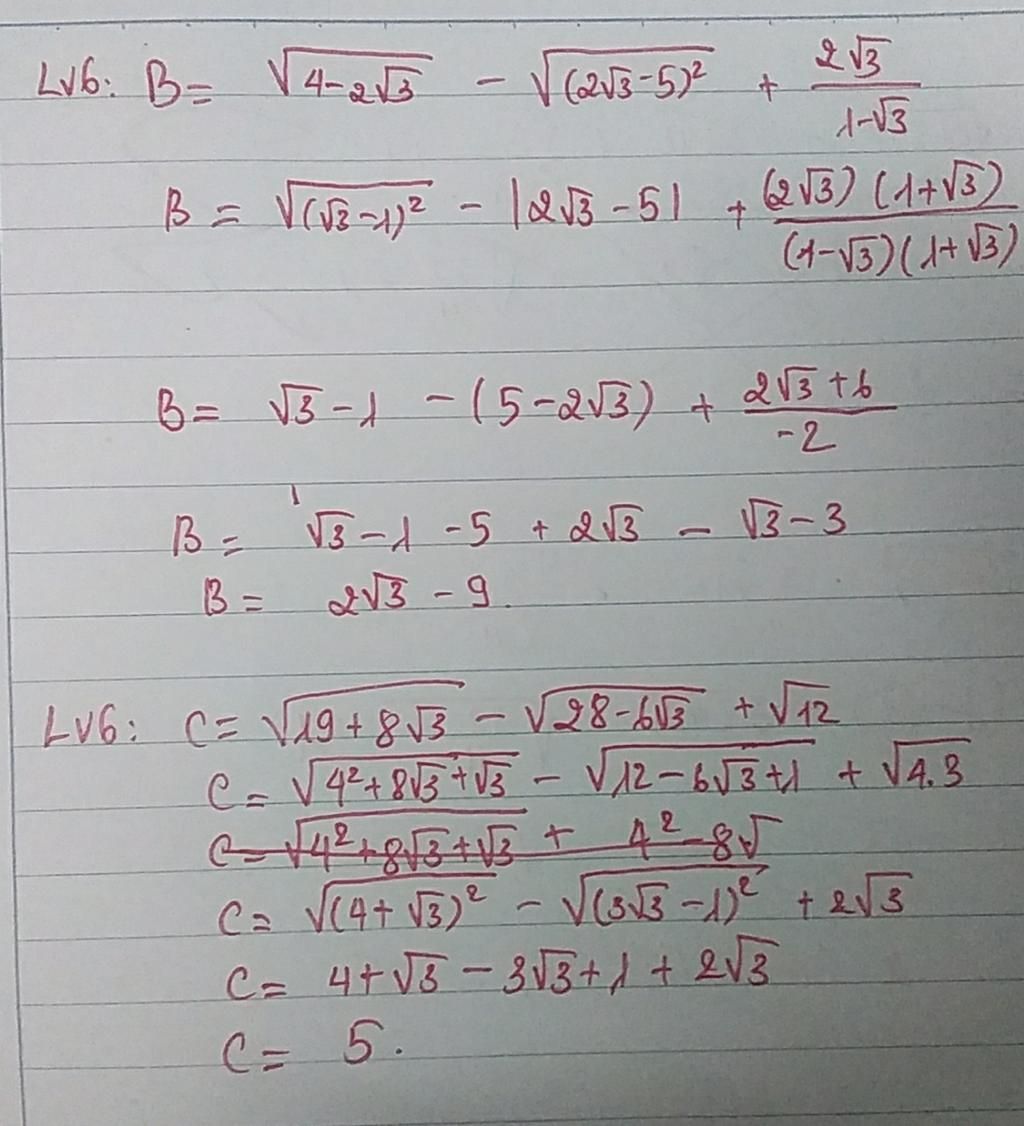 LV6: B = √(4-2√3) - √((2√3-5)²) + 2√3/(1-√3)
B = √((√3-1)²) - |2√3-5| + (2√3)(1+√3)/((1-√3)(1+√3))
B = √3-1 - (5-2√3) + (2√3+6)/(-2)
B = √3-1-5 + 2√3 - √3-3
B = 2√3 - 9.
LV6: C = √(19+8√3) - √(28-6√3) + √12
C = √(4²+8√3+√3) - √(12-6√3+1) + √(4.3)
C = √(4²+8√3+√3) + 4²-8√
C = √((4+√3)²) - √((3√3-1)²) + 2√3
C = 4+√3 - 3√3+1 + 2√3
C = 5.